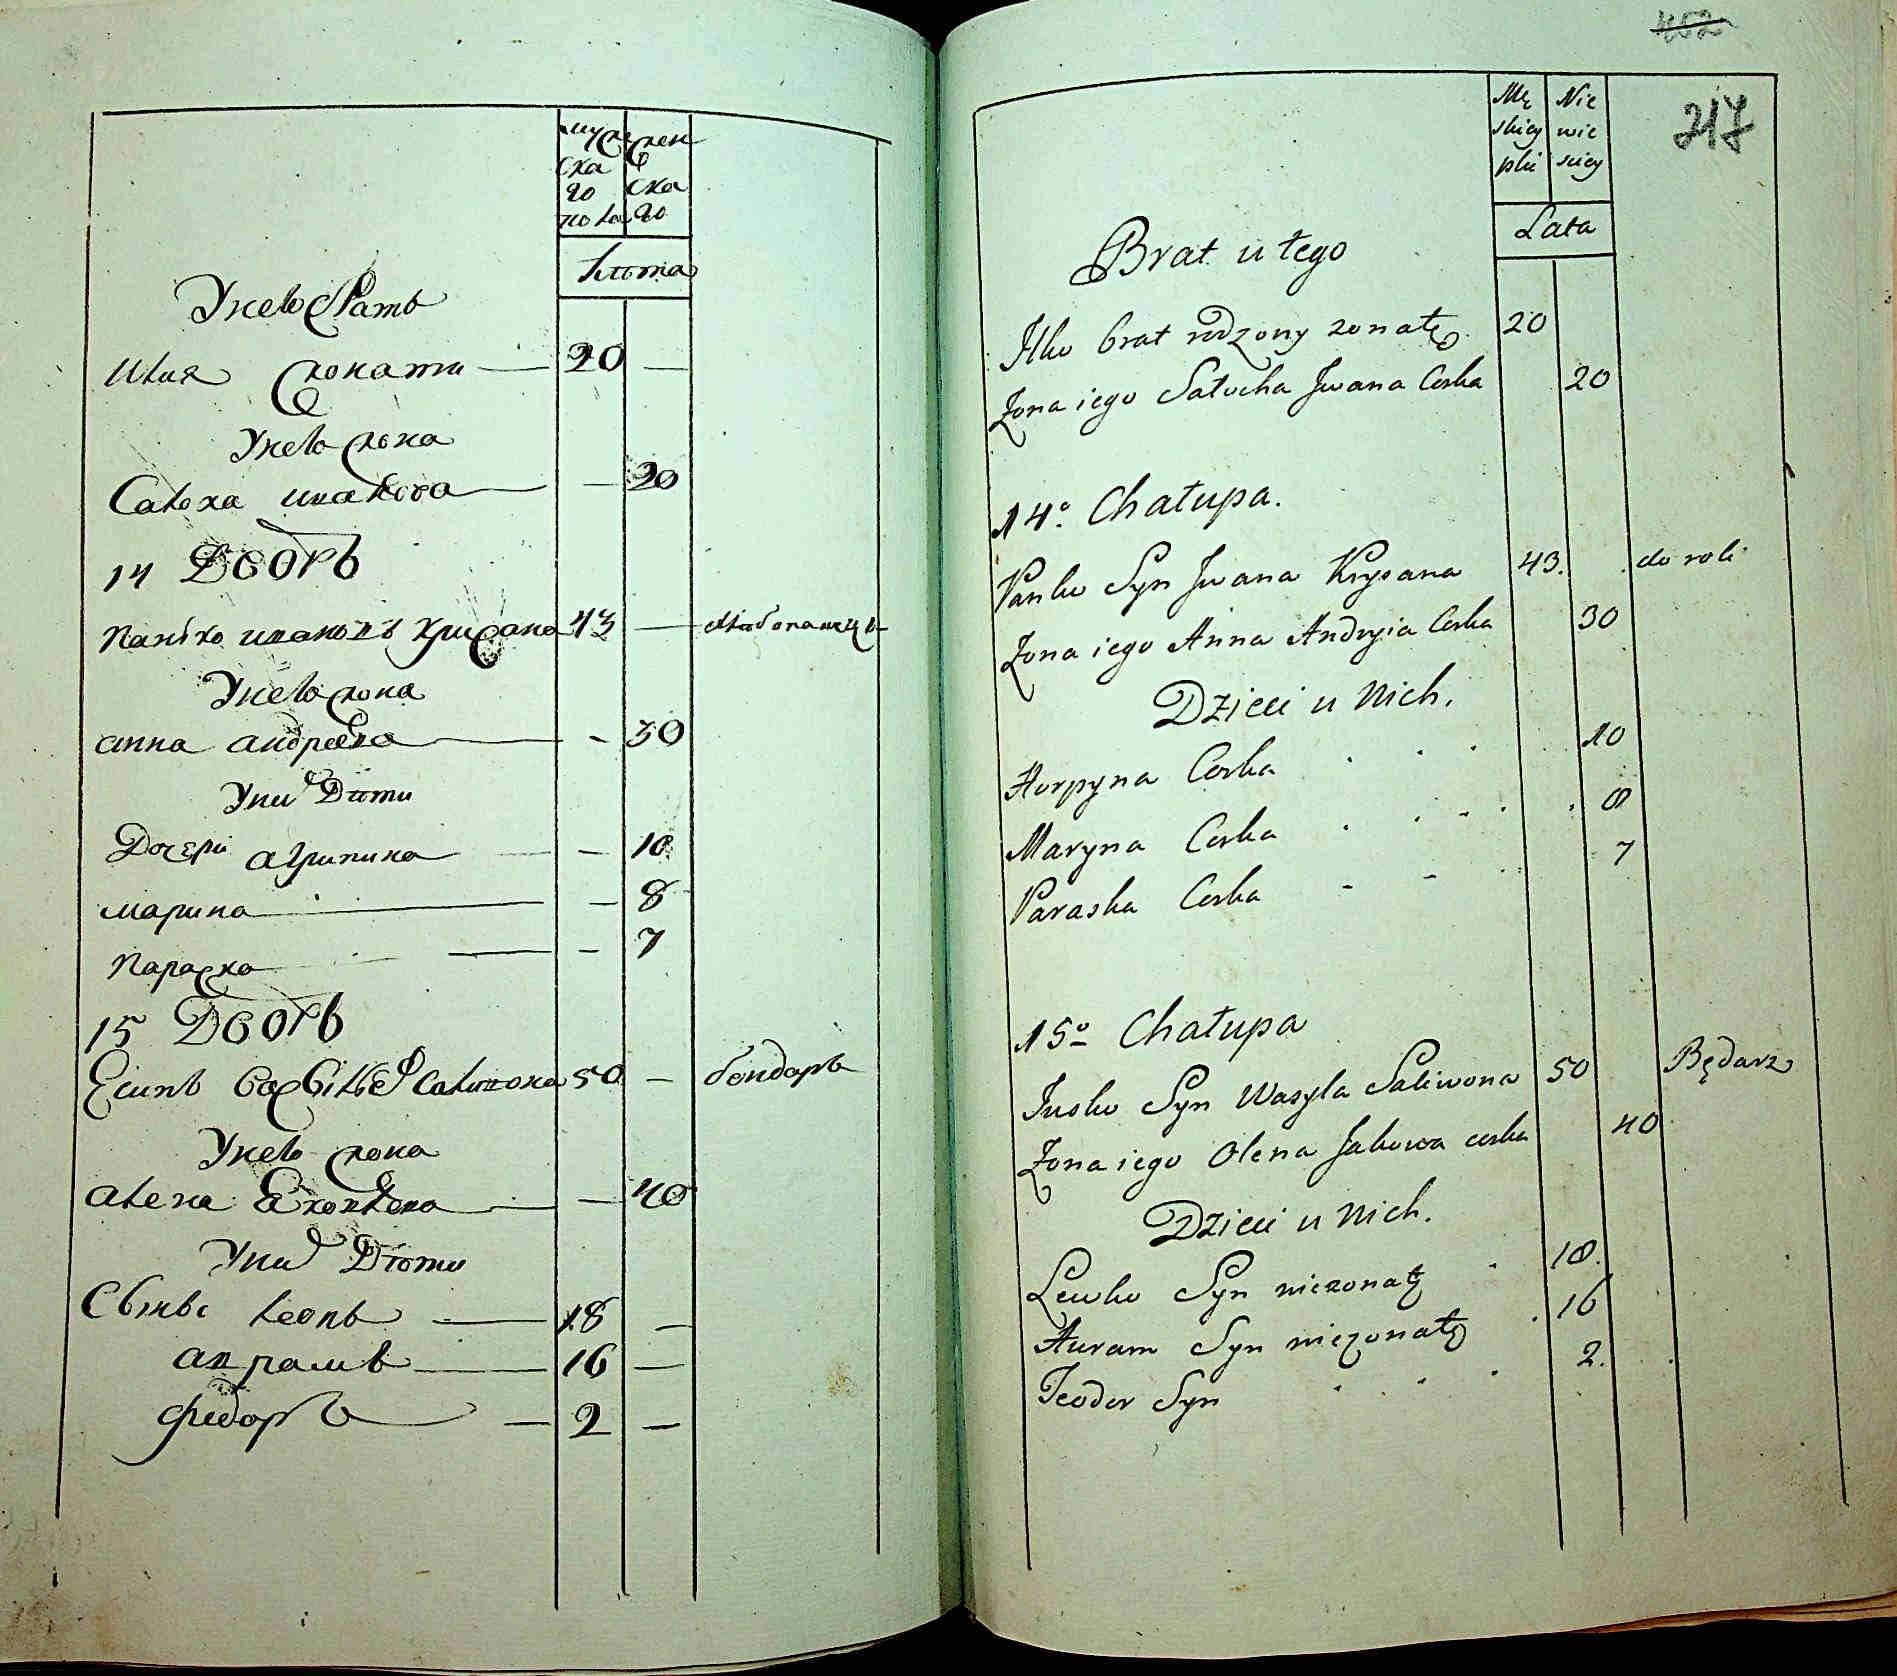 мужеска го пола
женска го
Лѣта
У него братъ
Илия женатъ — 20 —
У него жена
Салоха иванова — — 20
14 Дворъ
Панько ивановъ крисана 43 — хлѣбопашецъ
У него жена
анна андреева — — 30
У ниⷯ Дѣти
Дочери агрипина — — 10
марина — — 8
параска — — 7
15 Дворъ
Есипъ васильеⷡ саливона 50 — бондаръ
У него жена
алена яковлева — — 40
У ниⷯ Дѣти
Синове леонъ — 18 —
аврамъ — 16 —
федоръ — 2 —
452
217
Mę skiey płci
Nie wie sciey
Lata
Brat u tego
Ilko brat rodzony zonaty 20
Zona iego Sałocha Jwana Corka 20
14º Chałupa.
Panko Syn Jwana Krysana 43. do roli
Zona iego Anna Andryia Corka 30
Dzieci u Nich.
Horpyna Corka 10
Maryna Corka 8
Paraska Corka 7
15º Chałupa
Jusko Syn Wasyla Saliwona 50 Będarz
Zona iego Olena Jakowa corka 40
Dzieci u Nich.
Lewko Syn niezonaty 18.
Auram Syn niezonaty 16
Teodor Syn 2.